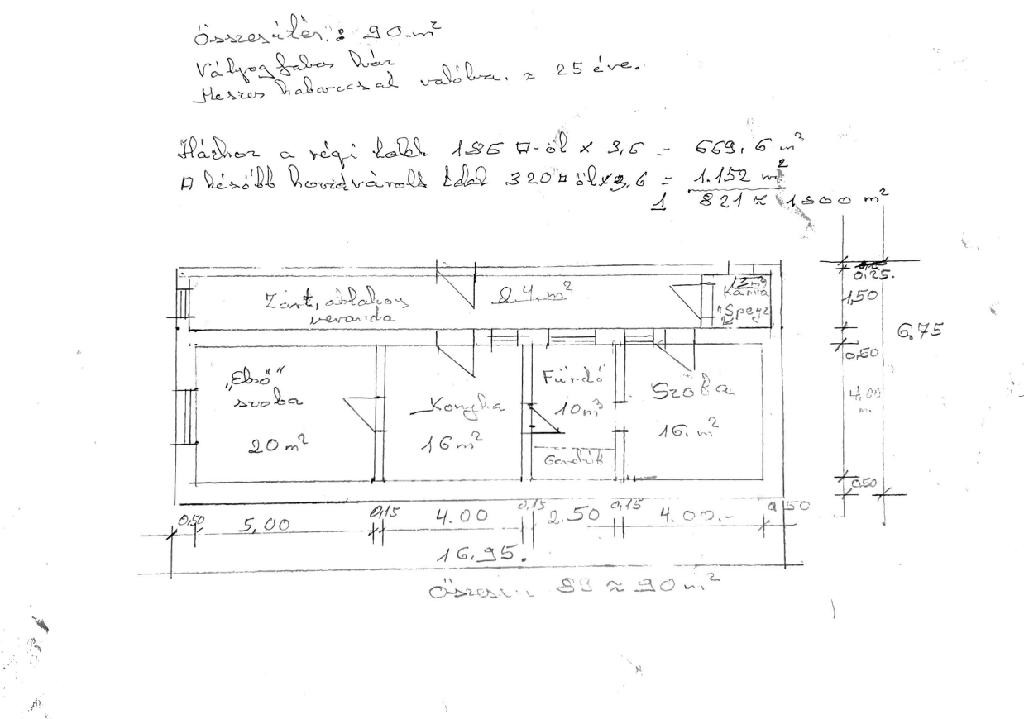 Összesítés: 90 m²
Vályogfalas ház
Meszes habarccsal ≈ 25 éve.
Házhoz a régi telek 186 □-öl x 3,6 = 669,6 m²
A később telek 320 □ öl x 3,6 = 1.152 m²
1 821 ≈ 1800 m²
Zárt, ablakos
veranda
m²
Kamra
"Spejz"
0,25.
1,50
0,50
4,00
m.
0,50
6,75
"Első"
szoba
20 m²
Konyha
16 m²
Fürdő
10 m³
Szoba
16. m²
0,50
5,00
0,15
4.00
0,15
2.50
0,15
4.00.-
0,50
16.95.
Összesen: 89 ≈ 90 m²